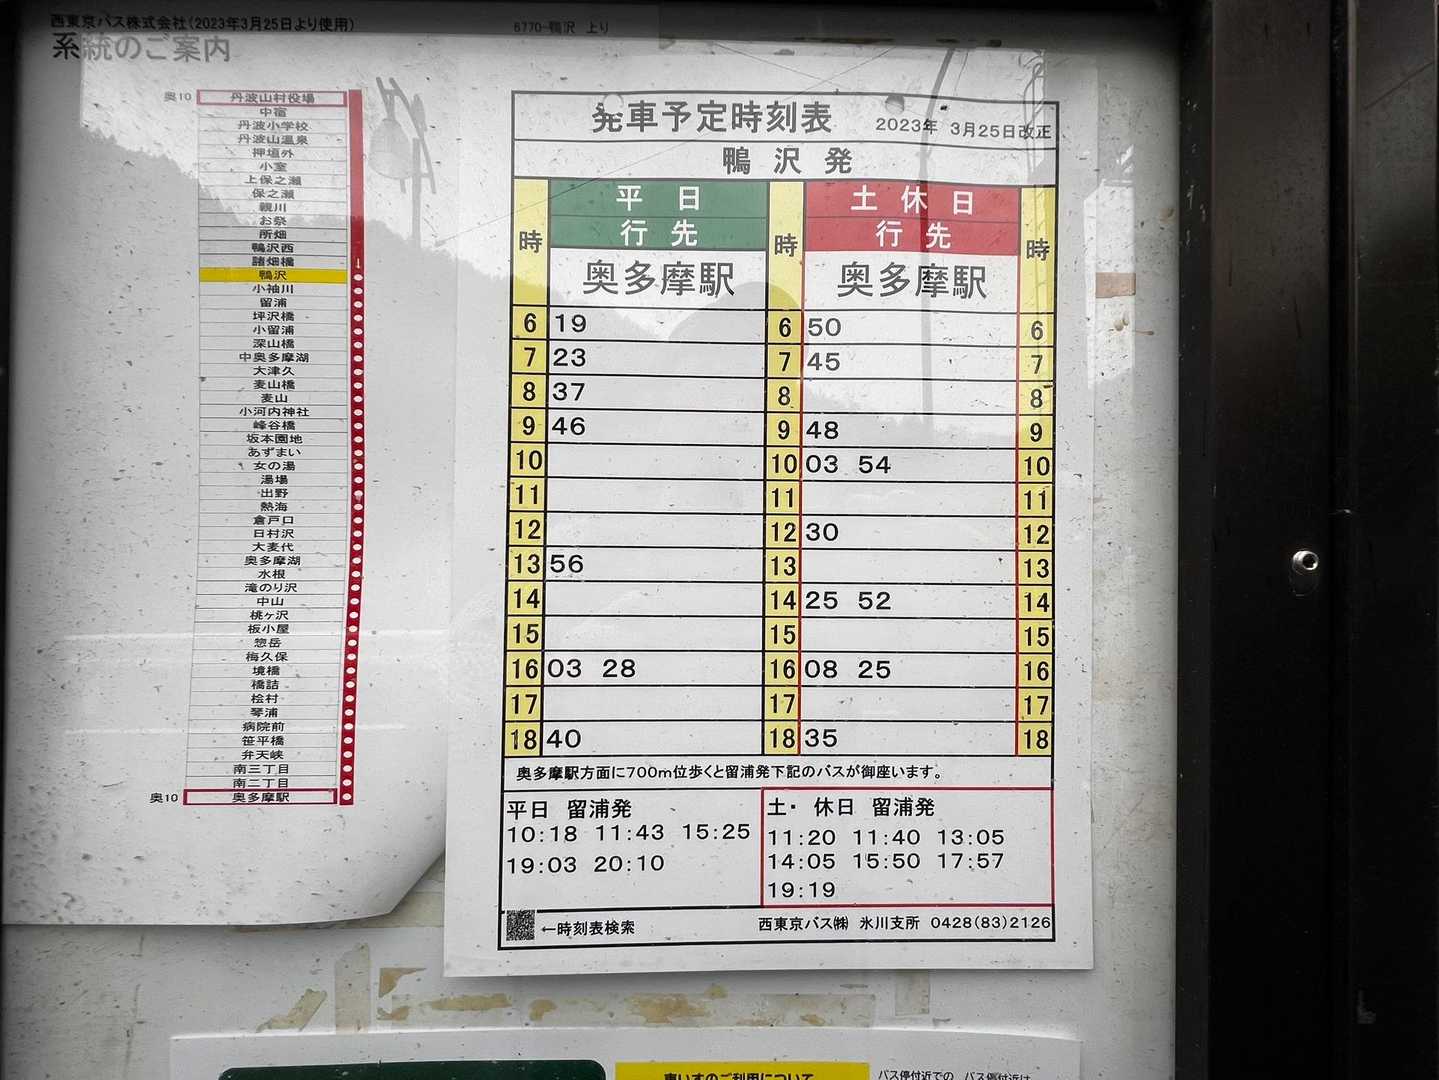 西東京バス株式会社(2023年3月25日より使用)
6770-鴨沢 上り
系統のご案内
奥10 丹波山村役場
中宿
丹波小学校
丹波山温泉
押垣外
小室
上保之瀬
保之瀬
親川
お祭
所畑
鴨沢西
諸畑橋
鴨沢
小袖川
留浦
坪沢橋
小留浦
深山橋
中奥多摩湖
大津久
麦山橋
麦山
小河内神社
峰谷橋
坂本園地
あずまい
女の湯
湯場
出野
熱海
倉戸口
日村沢
大麦代
奥多摩湖
水根
滝のり沢
中山
桃ヶ沢
板小屋
惣岳
梅久保
境橋
橋詰
桧村
琴浦
病院前
笹平橋
弁天峡
南三丁目
南二丁目
奥10 奥多摩駅
発車予定時刻表 2023年 3月25日改正
鴨 沢 発
時 平 日 時 土 休 日 時
行 先 行 先
奥多摩駅 奥多摩駅
6 19 6 50 6
7 23 7 45 7
8 37 8 8
9 46 9 48 9
10 10 03 54 10
11 11 11
12 12 30 12
13 56 13 13
14 14 25 52 14
15 15 15
16 03 28 16 08 25 16
17 17 17
18 40 18 35 18
奥多摩駅方面に700m位歩くと留浦発下記のバスが御座います。
平日 留浦発
10:18 11:43 15:25
19:03 20:10
土・ 休日 留浦発
11:20 11:40 13:05
14:05 15:50 17:57
19:19
←時刻表検索 西東京バス㈱ 氷川支所 0428(83)2126
車いすのご利用について
バス停付近での バス停付近は